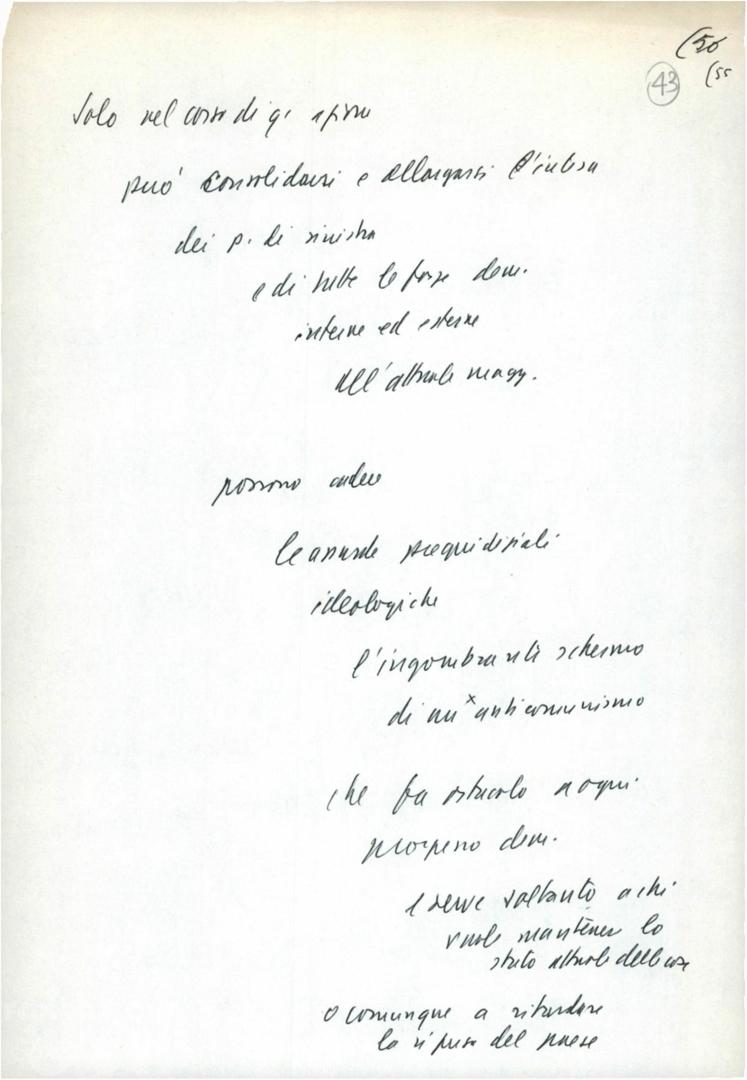 (50
43 (55
Solo nel corso di q. azione
può consolidarsi e allargarsi l'intesa
dei p. di sinistra
e di tutte le forze dem.
interne ed esterne
all'attuale magg.
possono cadere
le assurde pregiudiziali
ideologiche
l'ingombrante schermo
di un x anticomunismo
che fa ostacolo a ogni
progresso dem.
e serve soltanto a chi
vuole mantenere lo
stato attuale delle cose
o comunque a ritardare
la ripresa del paese